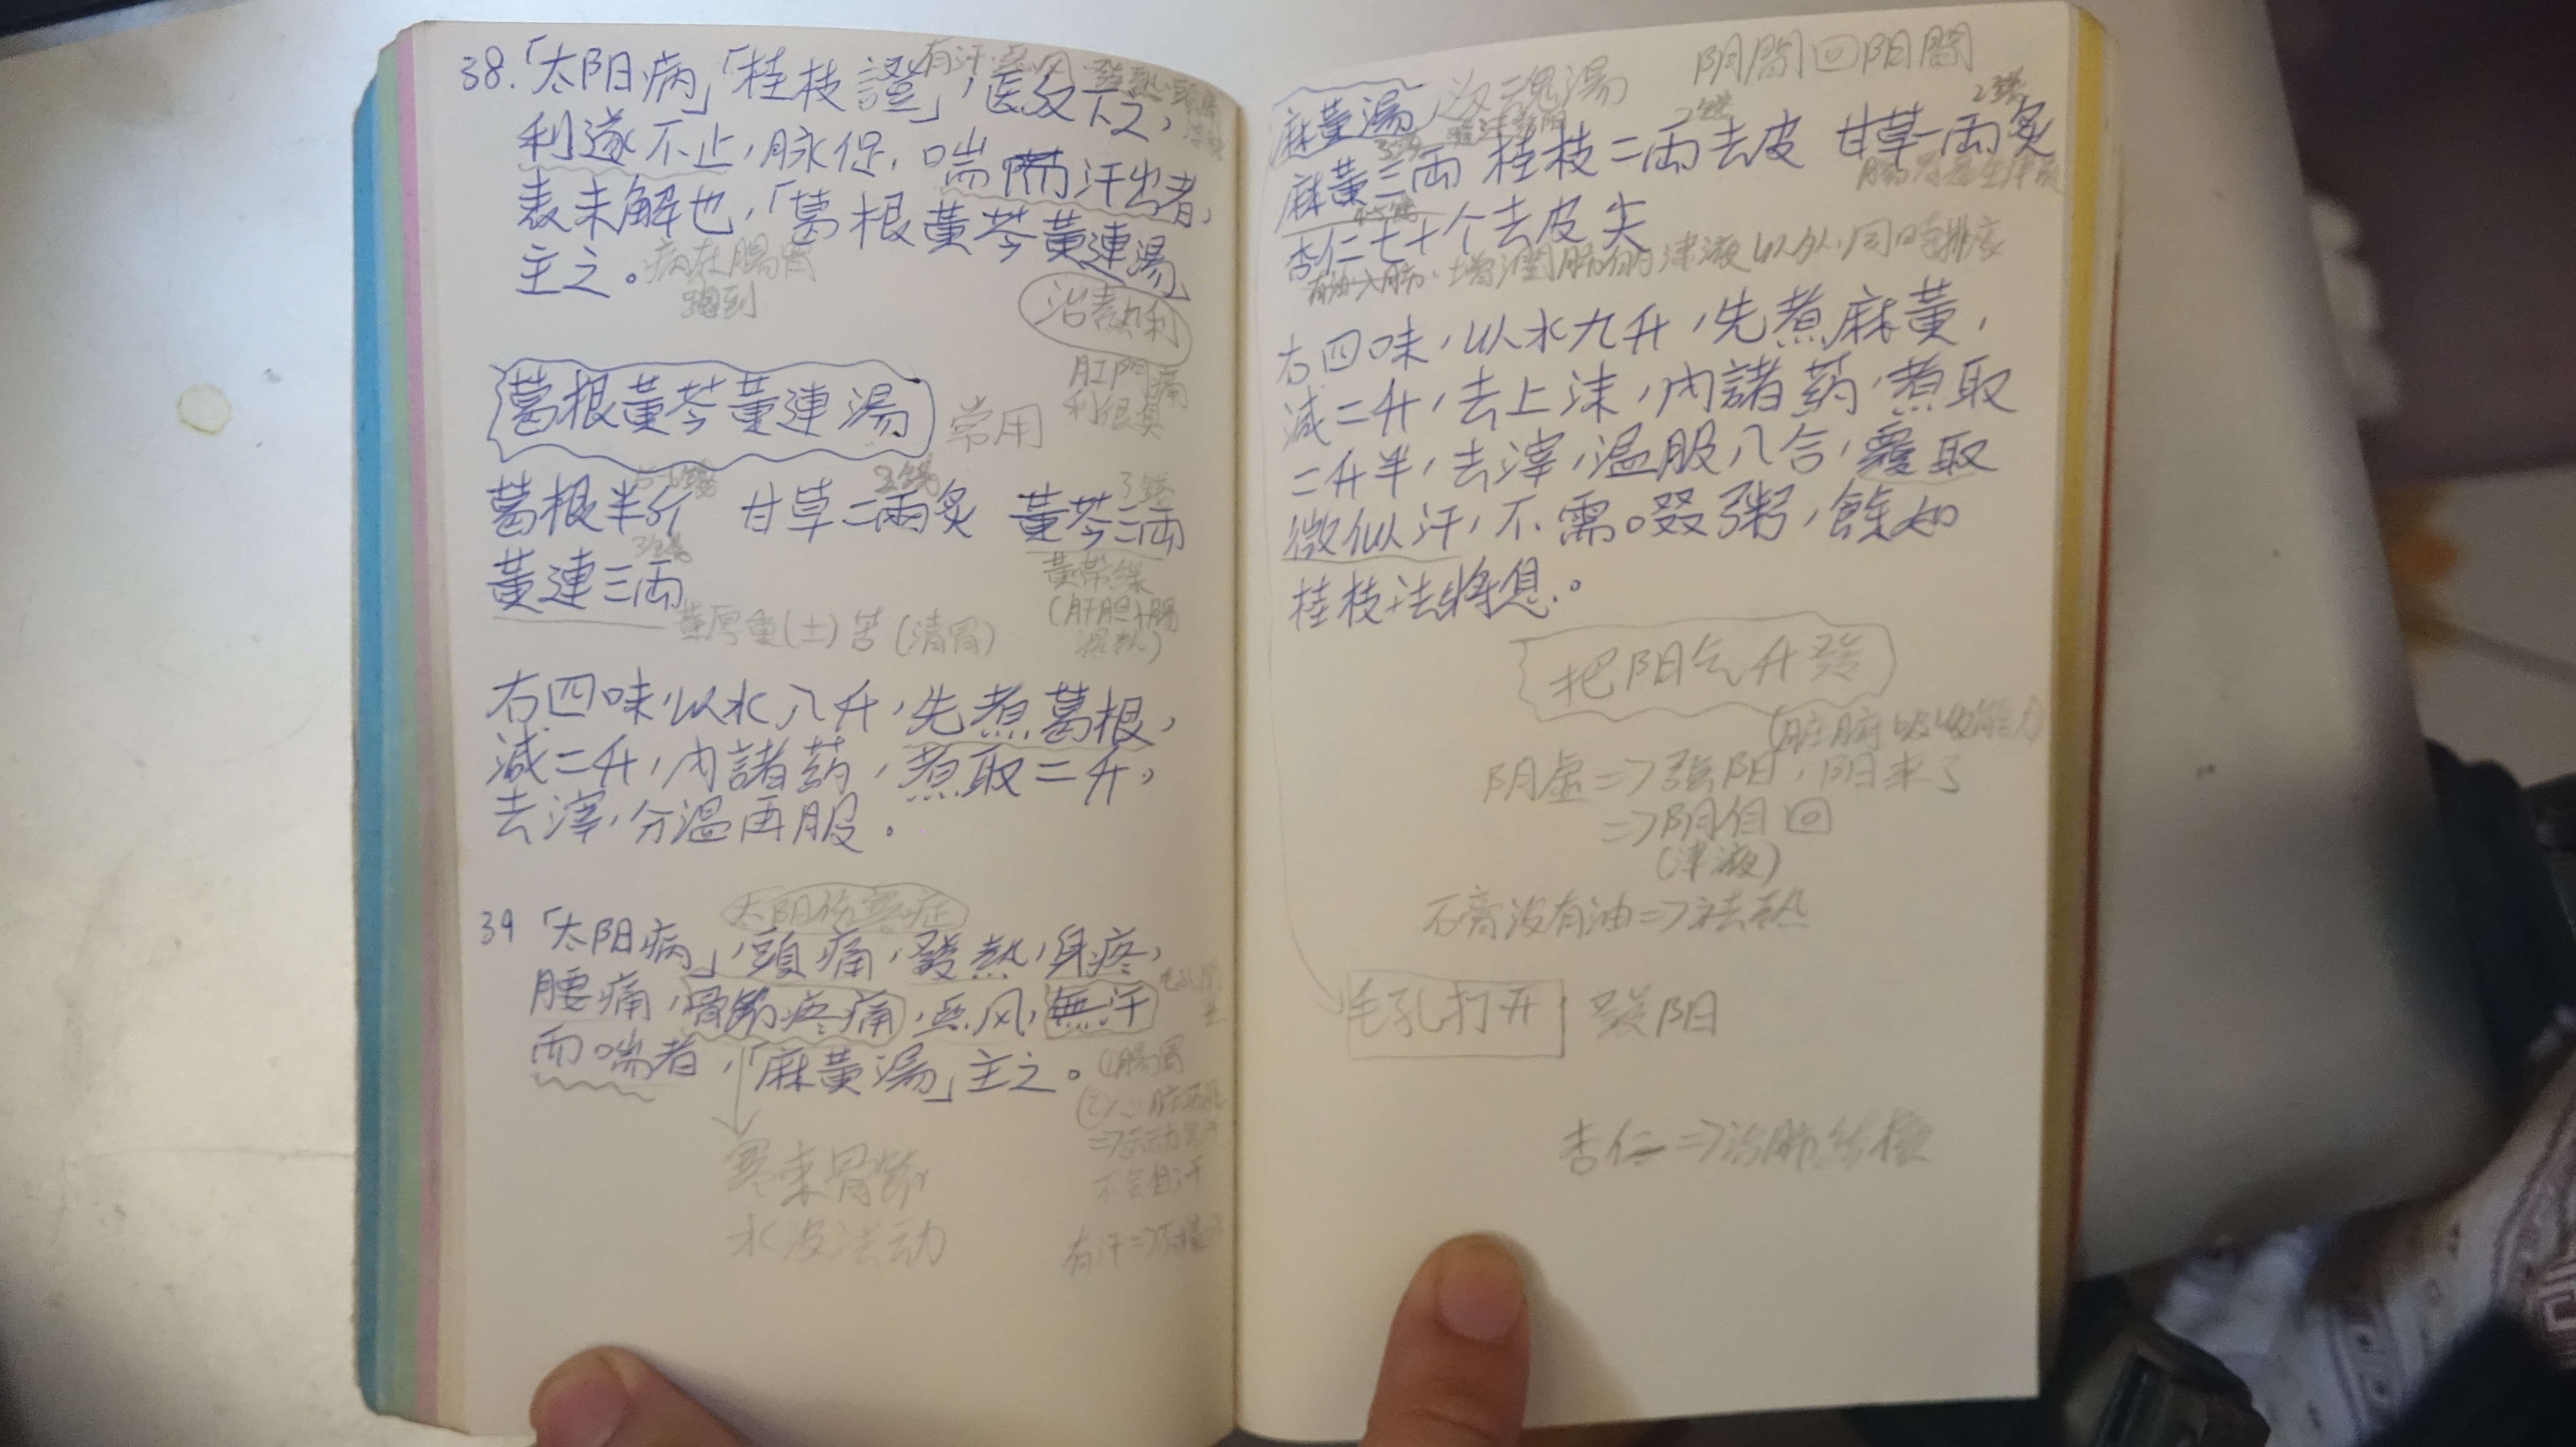 38.「太阳病」「桂枝證」,医反下之,
有汗
利遂不止,脉促,喘而汗出者,
表未解也,「葛根黃芩黃連湯」
主之。
病在腸胃
治表熱利
肛門痛
利很臭
葛根黃芩黃連湯
常用
葛根半斤 甘草二兩炙 黃芩三兩
2錢
3錢
黃連三兩
3錢
黃帶綠
(肝胆小腸
濕熱)
黃厚重(土)苦(清胃)
右四味,以水八升,先煮葛根,
減二升,內諸药,煮取二升,
去滓,分溫再服。
太阳伤寒症
39「太阳病」,頭痛,發熱,身疼,
腰痛,骨節疼痛,恶风,無汗
而喘者,「麻黃湯」主之。
①腸胃
不会自汗
寒束骨節
水沒流动
阴間回阳間
麻黃湯
还魂湯
麻黃三兩 桂枝二兩去皮 甘草一兩炙
3錢
2錢
2錢
杏仁七十个去皮尖
右四味,以水九升,先煮麻黃,
減二升,去上沫,內諸药,煮取
二升半,去滓,温服八合,覆取
微似汗,不需啜粥,餘如
桂枝法將息。
把阳气升發
(脏腑吸收能力)
阴虚=>強阳,阳来了
=>阴自回
(津液)
石膏沒有油=>祛熱
毛孔打开 發阳
杏仁=>治肺结核